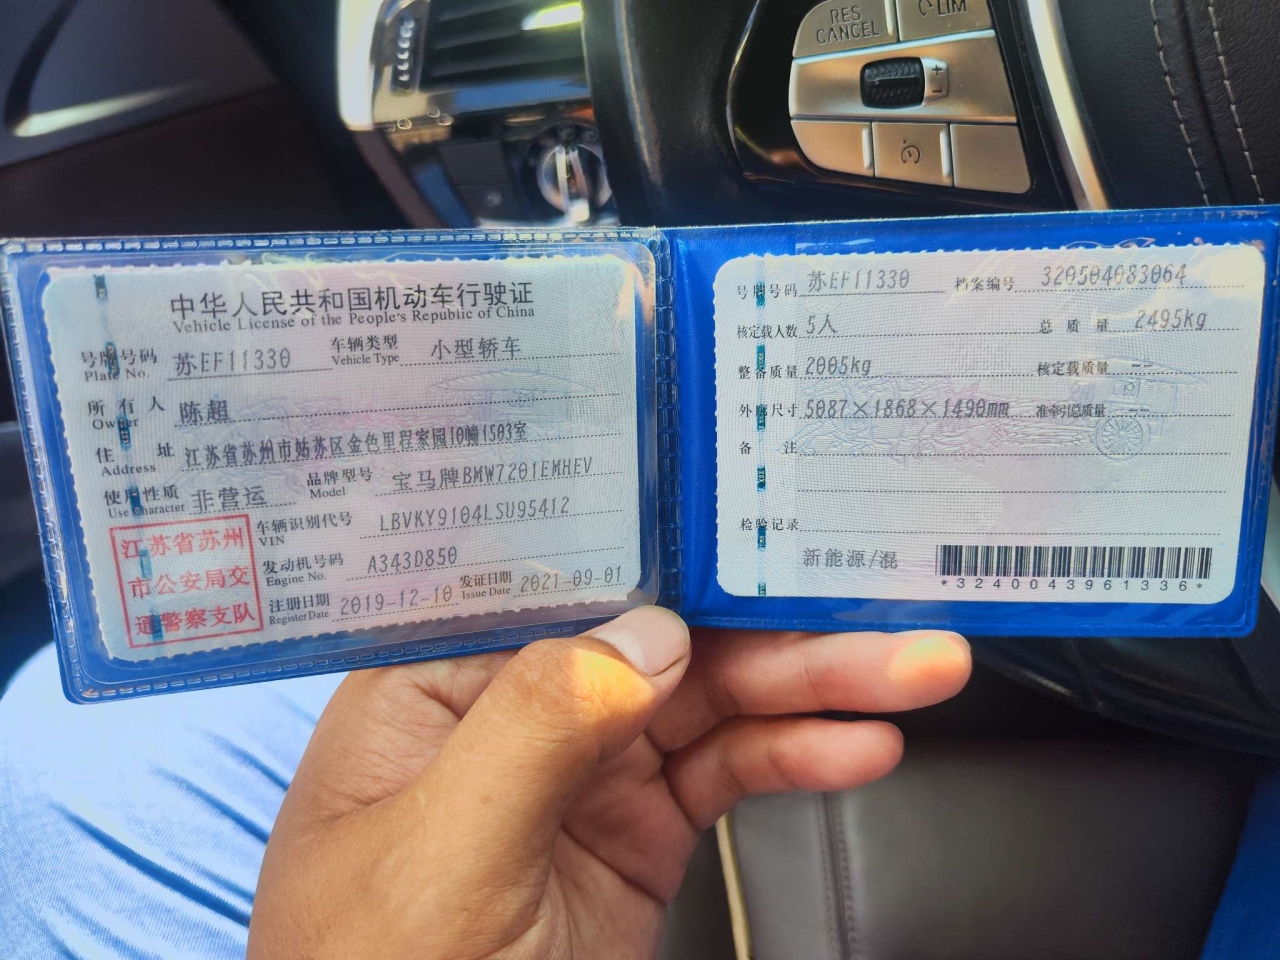 RES
CANCEL
LIM
+
-
中华人民共和国机动车行驶证
Vehicle License of the People's Republic of China
号牌号码 苏EF11330 车辆类型 小型轿车
Plate No. Vehicle Type
所有人 陈超
Owner
住址 江苏省苏州市姑苏区金色里程家园10幢1503室
Address
使用性质 非营运 品牌型号 宝马牌BMW7201EMHEV
Use Character Model
江苏省苏州
市公安局交
通警察支队
车辆识别代号 LBVKY9104LSU95412
VIN
发动机号码 A343D850
Engine No.
注册日期 2019-12-10 发证日期 2021-09-01
Register Date Issue Date
号牌号码 苏EF11330 档案编号 320504083064
核定载人数 5人 总质量 2495kg
整备质量 2005kg 核定载质量 --
外廓尺寸 5087×1868×1490mm 准牵引总质量 --
备注
检验记录
新能源/混
*3240043961336*